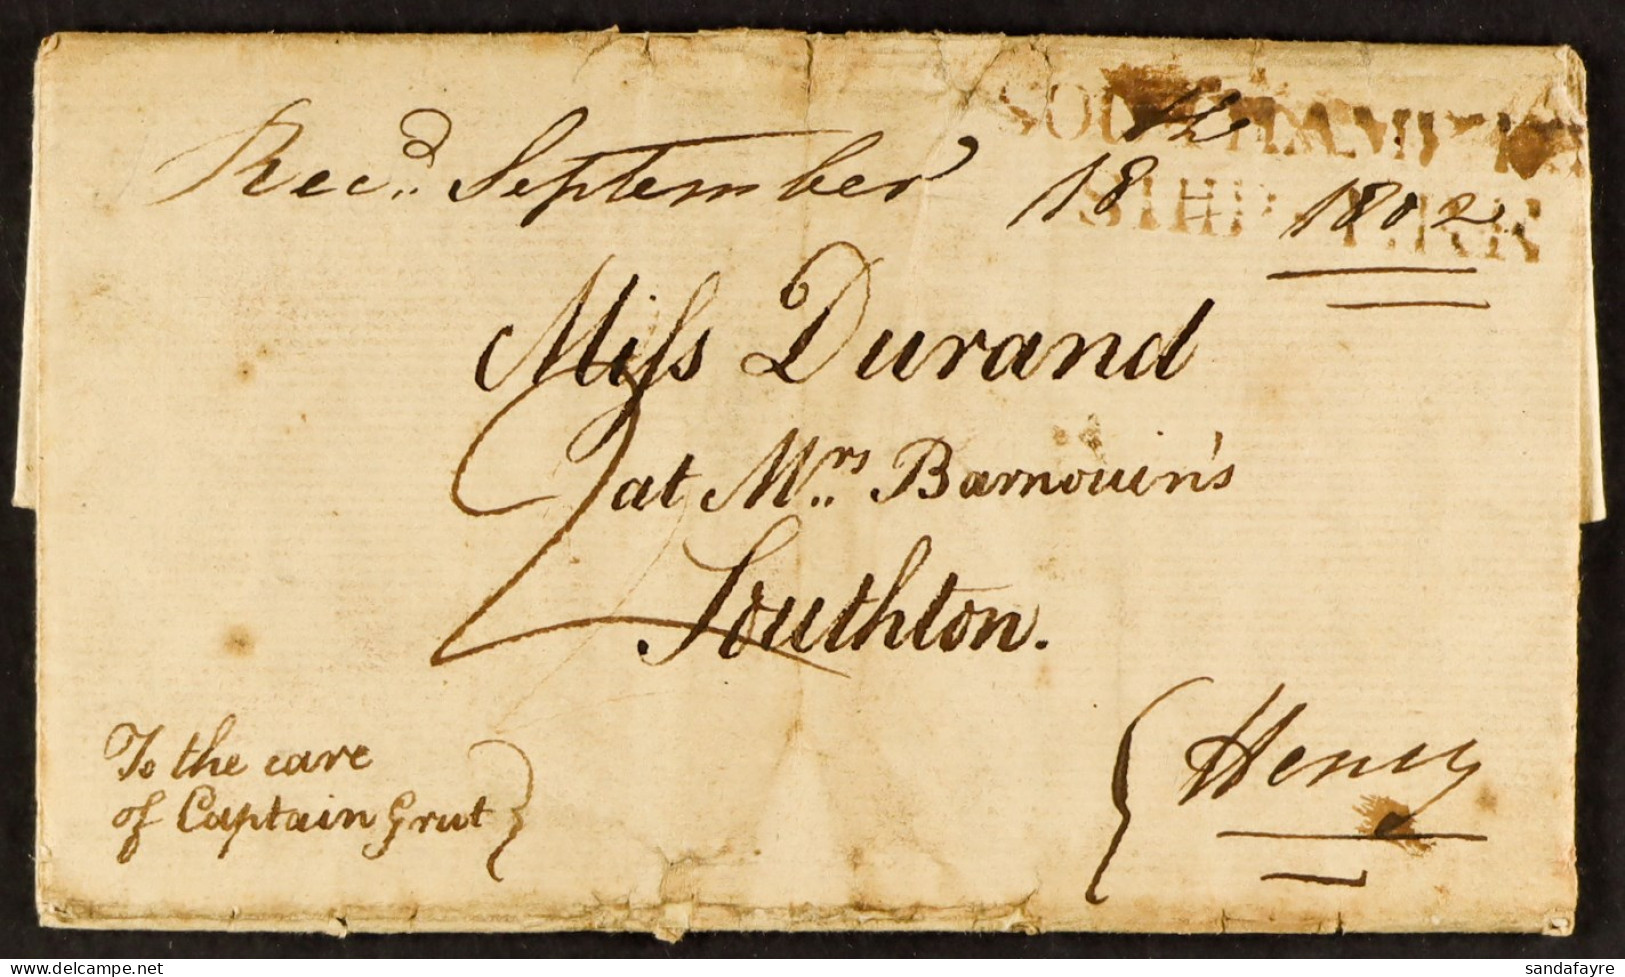 SOUTHAMPTON
SHIP LRE
Rec.d September 18th 1802
Miſs Durand
2
at Mrs Barnouin's
Southton.
To the care
of Captain Grut
Henry
sandafayre